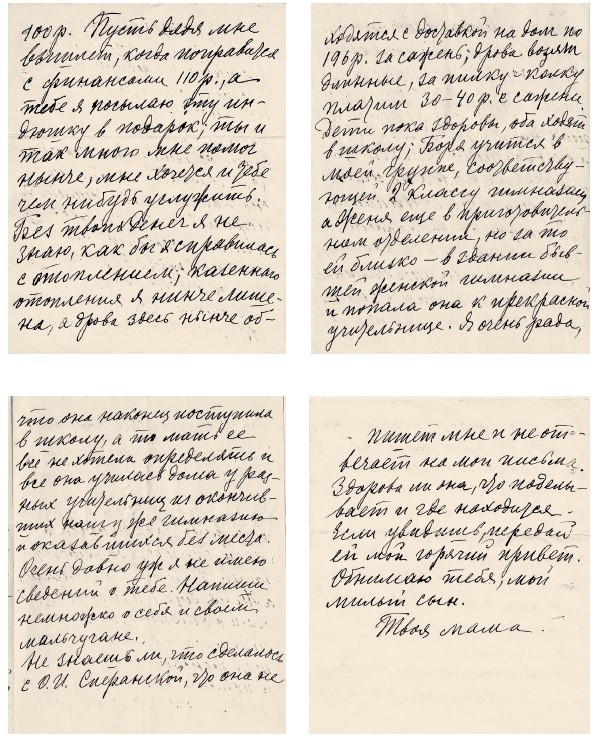 400р. Пусть дядя мне
вышлет, когда поправится
с финансами 110р., а
тебе я посылаю эту ин-
дюшку в подарок; ты и
так много мне помог
нынче, мне хочется и тебе
чем нибудь услужить.
Без твоих денег я не
знаю, как бы я справилась
с отоплением; казенного
отопления я нынче лише-
на, а дрова здесь нынче об-
ходятся с доставкой на дом по
196р. за сажень; дрова возят
длинные, за пилку-колку
платим 30-40р. с сажени
Дети пока здоровы, оба ходят
в школу; Бора учится в
моей группе, соответству-
ющей 2 классу гимназии,
а Женя еще в приготовитель-
ном отделении, но за то
ей близко – в здании быв-
шей женской гимназии
и попала она к прекрасной
учительнице. Я очень рада,
что она наконец поступила
в школу, а то мать ее
всё не хотела определять и
все она училась дома у раз-
ных учительниц из окончив-
ших нашу же гимназию
и оказавшихся без места.
Очень давно уж я не имею
сведений о тебе. Напиши
немножко о себе и своем
мальчугане.
Не знаешь ли, что сделалось
с О.И. Сперанской, что она не
пишет мне и не от-
вечает на мои письма.
Здорова ли она, что поделы-
вает и где находится.
Если увидишь, передай
ей мой горячий привет.
Обнимаю тебя, мой
милый сын.
Твоя мама.